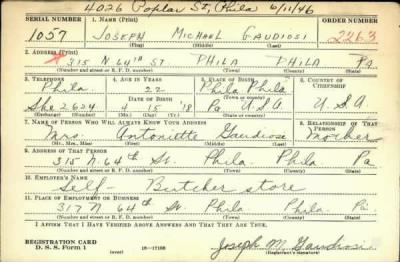 4026 Poplar St, Phila 6/11/46
SERIAL NUMBER 1. NAME (Print) ORDER NUMBER
1057 JOSEPH MICHAEL GAUDIOSI 2263
(First) (Middle) (Last)
2. ADDRESS (Print)
315 N 64TH ST. PHILA PHILA PA
(Number and street or R. F. D. number) (Town) (County) (State)
3. TELEPHONE 4. AGE IN YEARS 5. PLACE OF BIRTH 6. COUNTRY OF CITIZENSHIP
Phila. 22 Phila Phila
DATE OF BIRTH (Town or county)
She 2624 4 15 '18 Pa U.S.A U.S.A
(Exchange) (Number) (Mo.) (Day) (Yr.) (State or country)
7. NAME OF PERSON WHO WILL ALWAYS KNOW YOUR ADDRESS 8. RELATIONSHIP OF THAT PERSON
Mrs. Antoniette Gaudiosi Mother
(Mr., Mrs., Miss) (First) (Middle) (Last)
9. ADDRESS OF THAT PERSON
315 N. 64th St. Phila Phila Pa
(Number and street or R. F. D. number) (Town) (County) (State)
10. EMPLOYER'S NAME
Self - Butcher store
11. PLACE OF EMPLOYMENT OR BUSINESS
317 N. 64th St. Phila Phila Pa.
(Number and street or R. F. D. number) (Town) (County) (State)
I AFFIRM THAT I HAVE VERIFIED ABOVE ANSWERS AND THAT THEY ARE TRUE.
REGISTRATION CARD
D. S. S. Form 1 (over) 16—17105 Joseph M. Gaudiosi
(Registrant's signature)